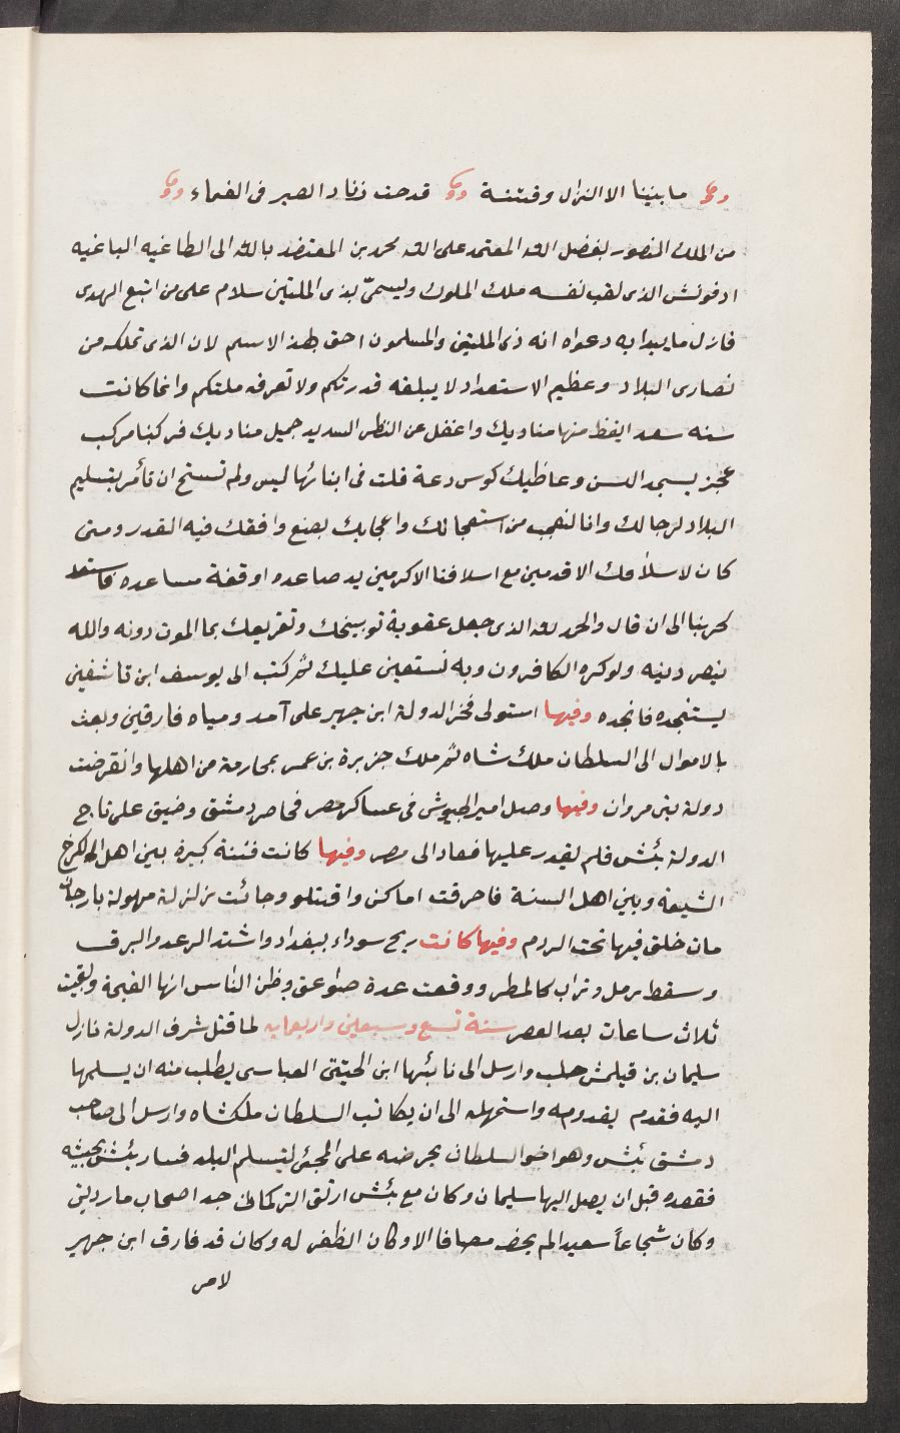 ما بيننا الا النزال وفتنة قدحت زناد الصبر في الغماء
من الملك المنصور بفضل الله المعتمد على الله محمد بن المعتضد بالله الى الطاغيه الباغيه
ادفونش الذى لقب نفسه ملك الملوك ويسمىّ بذى الملتين سلام على من اتبع الهدى
فاول ما يبدا به دعواه انه ذى الملتين والمسلمون احق بهذ الاسم لان الذى تملكه من
نصارى البلاد وعظيم الاستعداد لا يبلغه قدرتكم ولا تعرفه ملتكم وانما كانت
سنه سعد ايقظ منها مناديك واغفل عن النظر السديد جميل مناديك فركبنا مركب
عجز يسجد الكيس وعاطيك كوس دعة قلت فى ابنائها ليس ولم تستح ان تأمر بتسليم
البلاد لرجالك وانا لنعجب من استعجالك واعجابك بصنع وافقك فيه القدر ومتى
كان لاسلافك الاقدمين مع اسلافنا الاكرمين يد صاعده او قفة مساعده فاستعد
لحربنا الى ان قال والحمد لله الذى جعل عقوبة توبيخك وتقريعك بما الموت دونه والله
ينصر دينه ولوكره الكافرون وبه نستعين عليك ثم كتب الى يوسف ابن تاشفين
يستنجده فانجده وفيها استولى فخر الدولة ابن جهير على آمد ومياه فارقين وبعث
بالاموال الى السلطان ملك شاه ثم ملك جزيرة بن عمر بمخارمة من اهلها وانقرضت
دولة بنى مروان وفيها وصل امير الجيوش فى عساكر مصر فحاصر دمشق وضيق على تاج
الدولة تتش فلم يقدر عليها فعاد الى مصر وفيها كانت فتنة كبيرة بين اهل الكرخ
الشيعة وبين اهل السنة فاحرقت اماكن واقتتلو وجائت زلزلة مهولة بارجان
مات خلق فيها تحت الردم وفيها كانت ريح سوداء ببغداد واشتد الرعد والبرق
وسقط رمل وتراب كالمطر ووقعت عدة صواعق وظن الناس انها القيمة وبقيت
ثلاث ساعات بعد العصر سنة تسع وسبعين واربعمايه لما قتل شرف الدولة نازل
سليمان بن قيلمش حلب وارسل الى نائبها ابن الحتيتى العباسى يطلب منه ان يسلمها
اليه فقدم يقدومه واستمهله الى ان يكاتب السلطان ملكشاه وارسل الى صاحب
دمشق تتش وهو اخو السلطان يحرضه على المجئ ليتسلم البلد فسار تتش بجيشه
فقصده قبل ان يصل اليها سليمان وكان مع تتش ارتق التركمانى جد اصحاب ماردين
وكان شجاعاً سعيدا لم يحضر مصافا الا وكان الظفر له وكان قد فارق ابن جهير
لامر